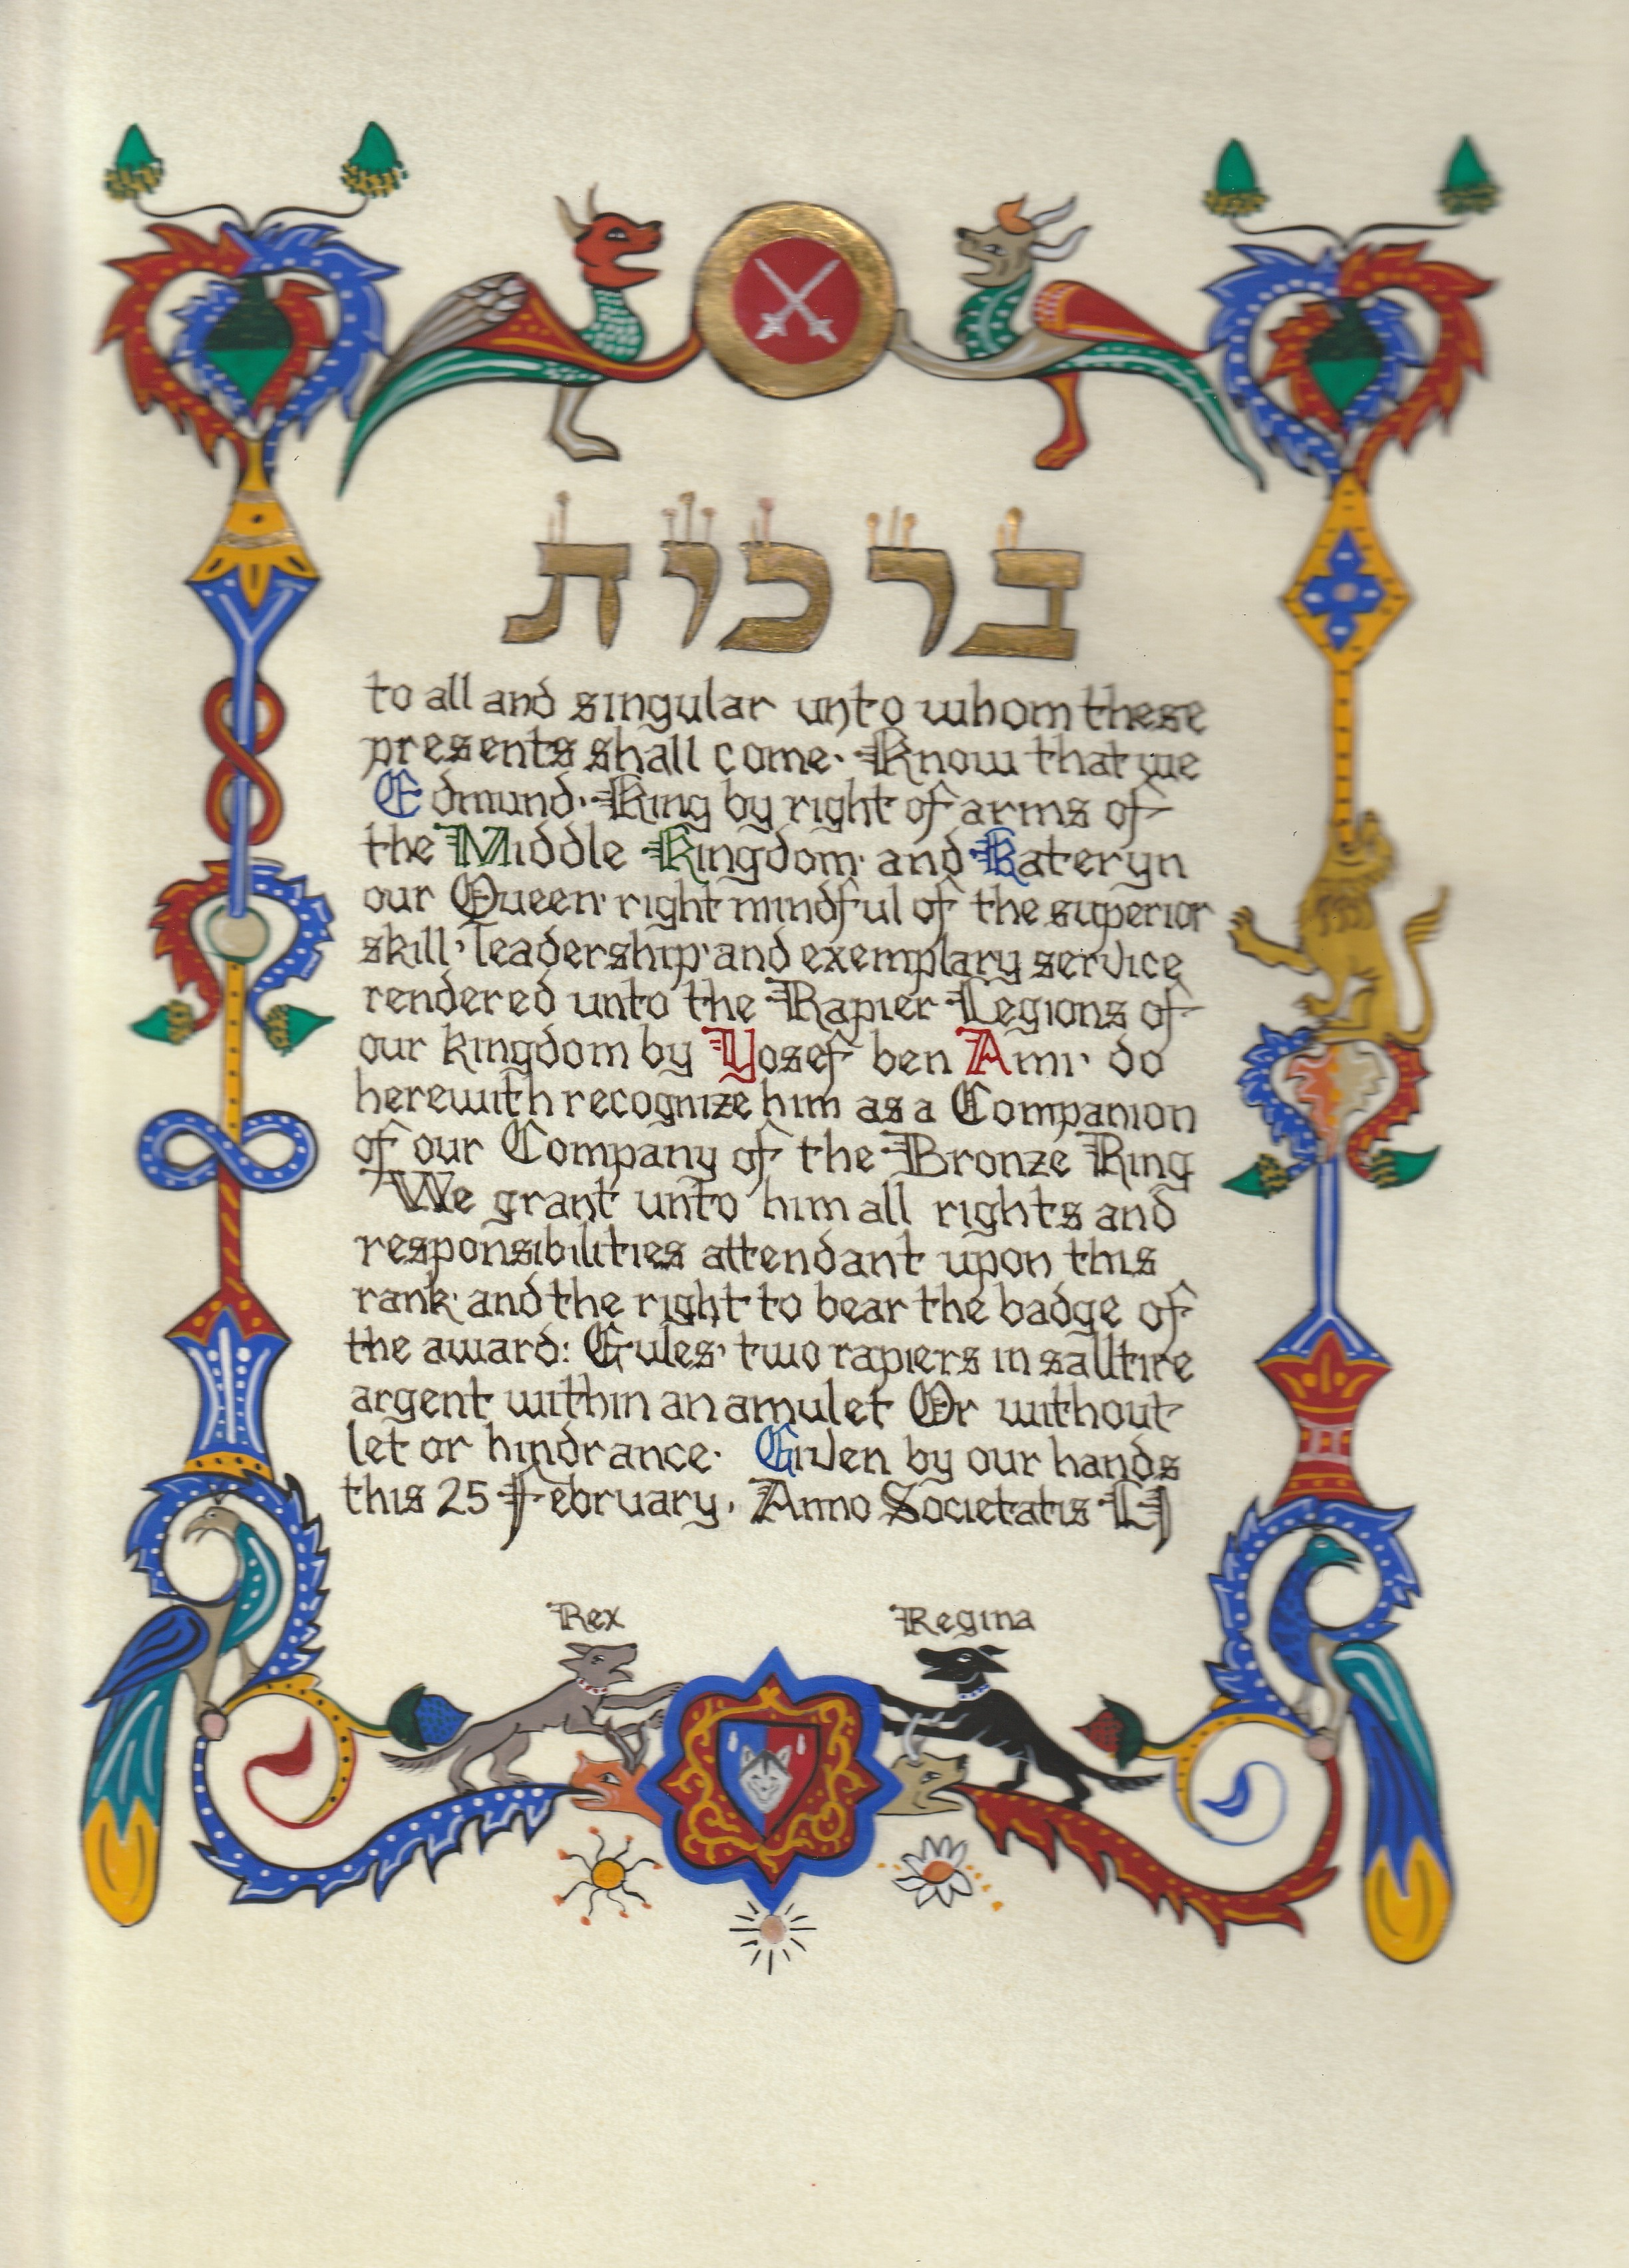 ברכית
to all and singular unto whom these
presents shall come· Know that we
Edmund· King by right of arms of
the Middle Kingdom· and Kateryn
our Queen· right mindful of the superior
skill· leadership· and exemplary service
rendered unto the Rapier Legions of
our kingdom by Yosef ben Ami· do
herewith recognize him as a Companion
of our Company of the Bronze Ring
We grant unto him all rights and
responsibilities attendant upon this
rank· and the right to bear the badge of
the award: Gules· two rapiers in salltire
argent within an amulet Or without
let or hindrance· Given by our hands
this 25 February, Anno Societatis LI
Rex Regina